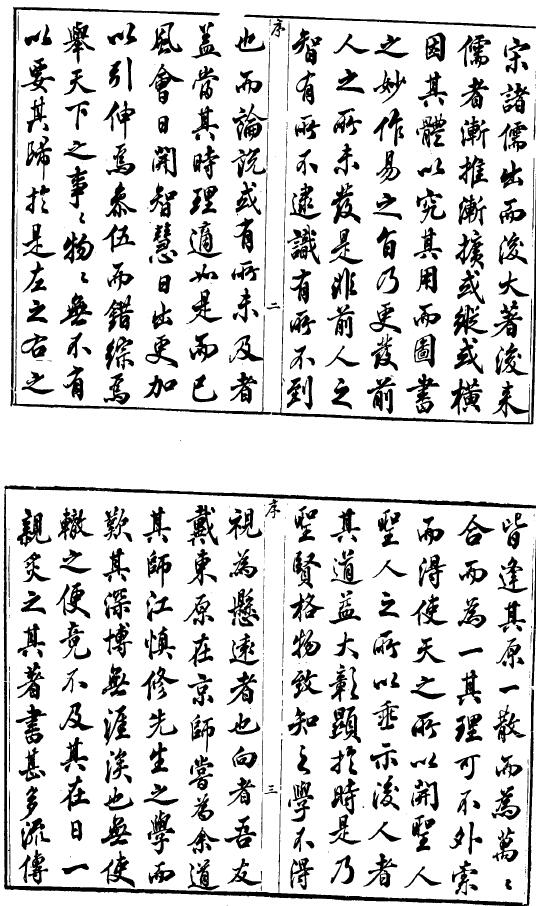 宋諸儒出而後大著後来
儒者漸推漸擴或縱或横
因其體以究其用而圖書
之妙作易之旨乃更發前
人之所未發是非前人之
智有所不逮識有所不到
序
二
也而論説或有所未及者
盖當其時理適如是而已
風會日開智慧日出更加
以引伸焉叅伍而錯綜焉
舉天下之事〻物〻無不有
以要其歸於是左之右之
皆逢其原一散而為萬〻
合而為一其理可不外索
而得使天之所以開聖人
聖人之所以垂示後人者
其道益大彰顯於時是乃
聖賢格物致知之學不得
序
三
視為懸遠者也向者吾友
戴東原在京師嘗為余道
其師江慎修先生之學而
歎其深博無涯涘也無使
轍之便竟不及其在日一
親炙之其著書甚多流傳